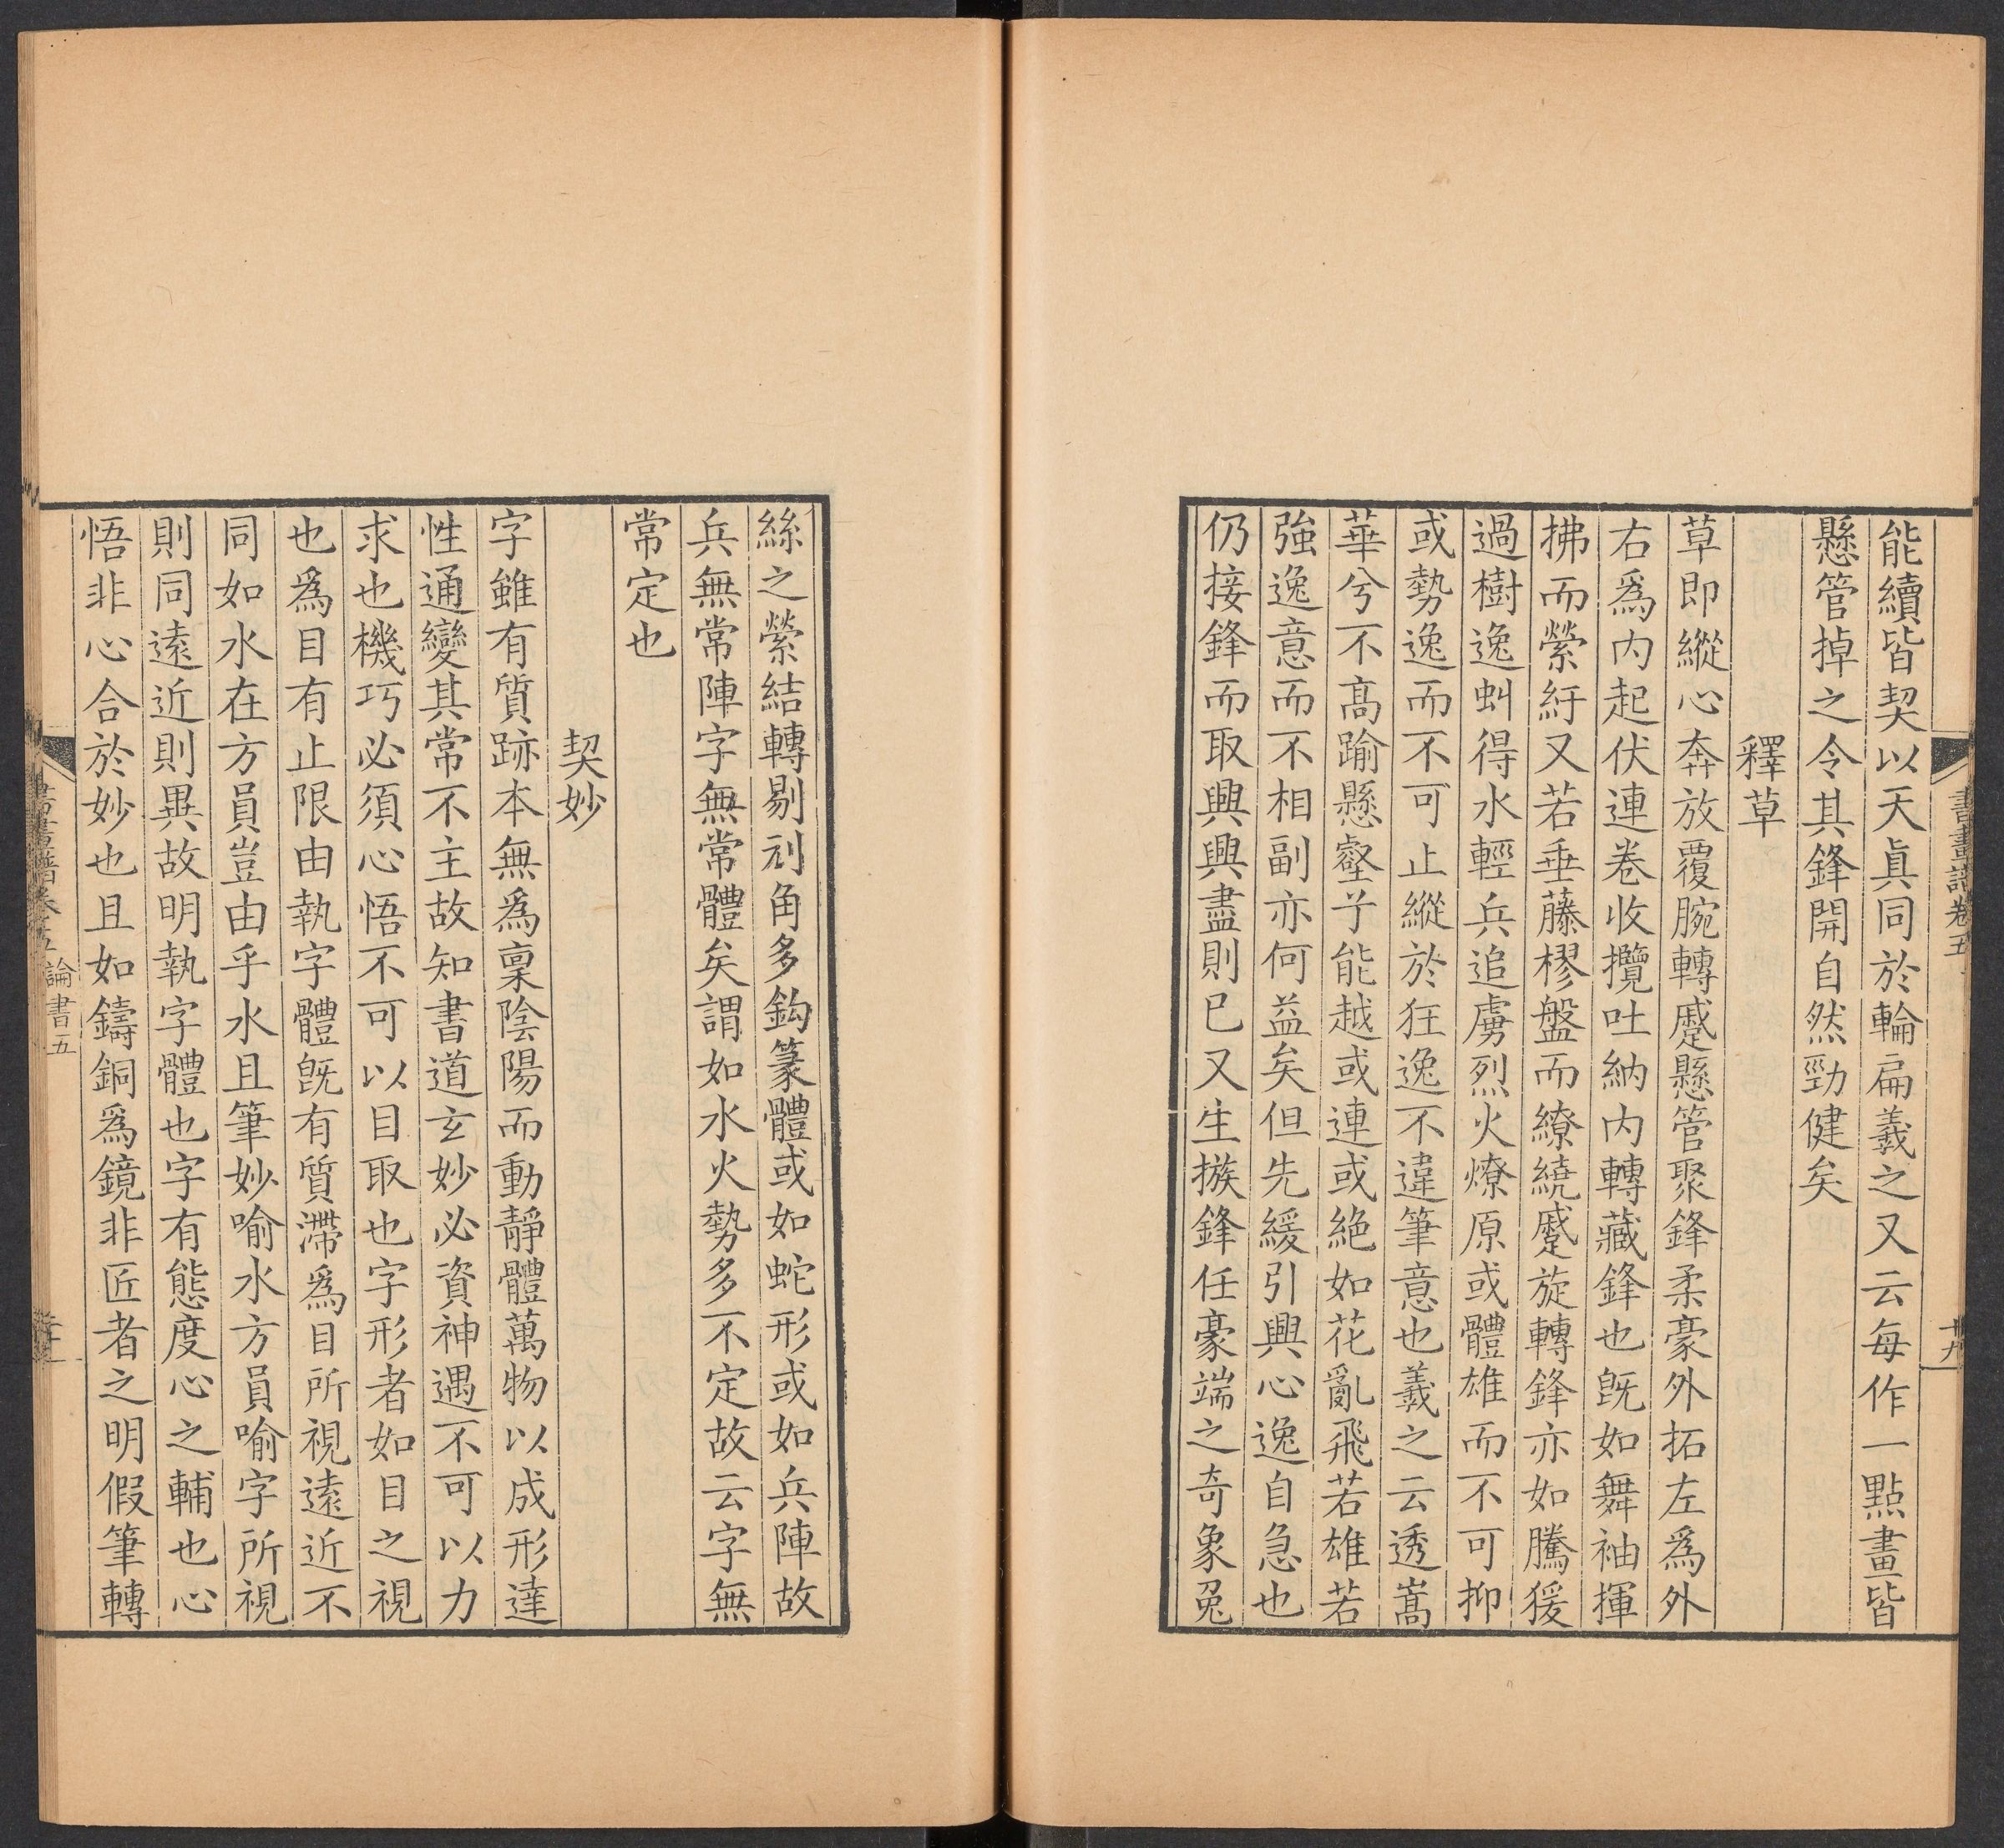 能續皆契以天真同於輪扁羲之又云每作一點畫皆
懸管掉之令其鋒開自然勁健矣
釋草
草即縱心奔放覆腕轉蹙懸管聚鋒柔豪外拓左爲外
右爲内起伏連卷收攬吐納内轉藏鋒也旣如舞袖揮
拂而縈紆又若垂藤樛盤而繚繞蹙旋轉鋒亦如騰猨
過樹逸虯得水輕兵追虜烈火燎原或體雄而不可抑
或勢逸而不可止縱於狂逸不違筆意也羲之云透嵩
華兮不高踰懸壑兮能越或連或絶如花亂飛若雄若
強逸意而不相副亦何益矣但先緩引興心逸自急也
仍接鋒而取興興盡則已又生摐鋒任豪端之奇象兔
書畫譜卷五
十九
絲之縈結轉剔刓角多鈎篆體或如蛇形或如兵陣故
兵無常陣字無常體矣謂如水火勢多不定故云字無
常定也
契妙
字雖有質跡本無爲稟陰陽而動靜體萬物以成形達
性通變其常不主故知書道玄妙必資神遇不可以力
求也機巧必須心悟不可以目取也字形者如目之視
也爲目有止限由執字體旣有質滯爲目所視遠近不
同如水在方員豈由乎水且筆妙喻水方員喻字所視
則同遠近則異故明執字體也字有態度心之輔也心
悟非心合於妙也且如鑄銅爲鏡非匠者之明假筆轉
論書五